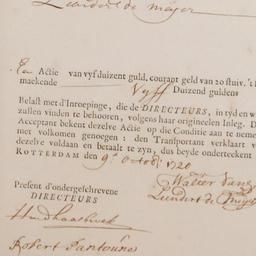 Leendert de meijer
Een Actie van vyf duizent guld, courant geld van 20 stuiv. 't
maekende Vyff Duizend guldens
Belast met d'Inroepinge, die de DIRECTEURS, in tyd en w
zullen vinden te behooren, volgens haar origineelen Inleg. D
Acceptant bekent dezelve Actie op die Conditie aan te nemen
met volkomen genoegen: den Transportant verklaart v
dezelve voldaan en betaalt te zyn, dus beyde onderteekent
ROTTERDAM den 9e Octob: 1720
Present d'ondergeschrevene
DIRECTEURS
Walter
Leendert de
Robert